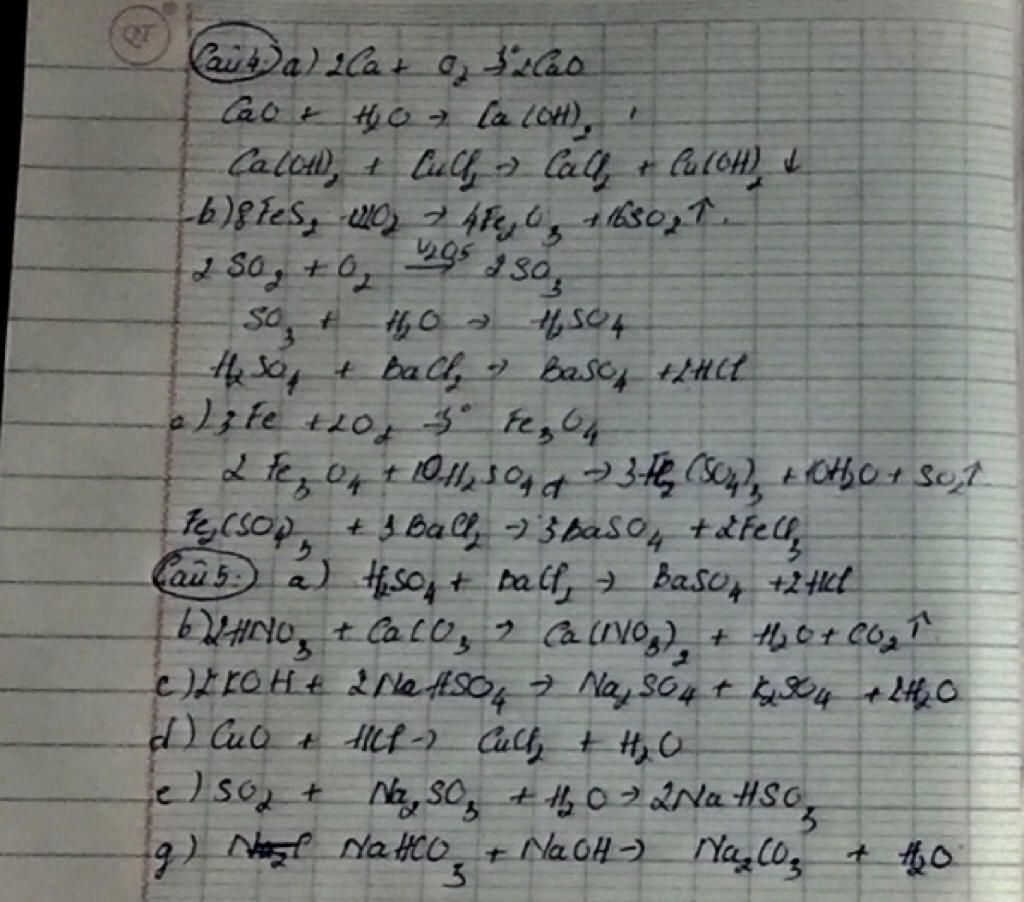 Câu 4: a) 2Ca + O₂ →t° 2CaO
CaO + H₂O → Ca(OH)₂
Ca(OH)₂ + CuCl₂ → CaCl₂ + Cu(OH)₂ ↓
b) 8FeS₂ O₂ → 4Fe₂O₃ + 16SO₂ ↑.
2SO₂ + O₂ →V₂O₅ 2SO₃
SO₃ + H₂O → H₂SO₄
H₂SO₄ + BaCl₂ → BaSO₄ + 2HCl
c) 3Fe + 2O₂ →t° Fe₃O₄
2Fe₃O₄ + 10H₂SO₄ đ → 3Fe₂(SO₄)₃ + 10H₂O + SO₂↑
Fe₂(SO₄)₃ + 3BaCl₂ → 3BaSO₄ + 2FeCl₃
Câu 5: a) H₂SO₄ + BaCl₂ → BaSO₄ + 2HCl
b) 2HNO₃ + CaCO₃ → Ca(NO₃)₂ + H₂O + CO₂ ↑
c) 2KOH + 2NaHSO₄ → Na₂SO₄ + K₂SO₄ + 2H₂O
d) CuO + HCl → CuCl₂ + H₂O
e) SO₂ + Na₂SO₃ + H₂O → 2NaHSO₃
g) NaHCO₃ + NaOH → Na₂CO₃ + H₂O